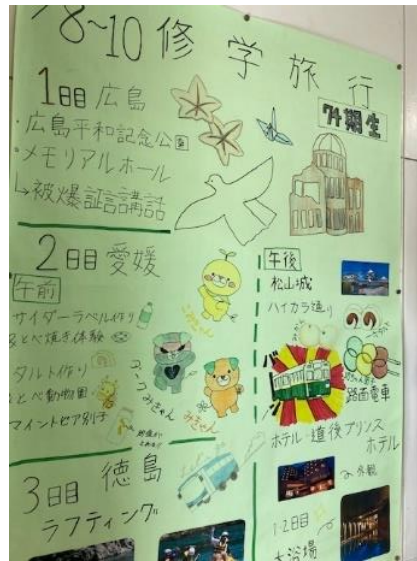 8~10 修学旅行
74期生
1日目 広島
広島平和記念公園
メモリアルホール
↳被爆証言講話
2日目 愛媛
午前
サイダーラベル作り
とべ焼き体験
タルト作り
とべ動物園
マイントピア別子
こみきゃん
ダークみきゃん
みきゃん
午後
松山城
ハイカラ通り
路面電車
ホテル・道後プリンス
ホテル
外観
1・2日目
大浴場
3日目 徳島
ラフティング